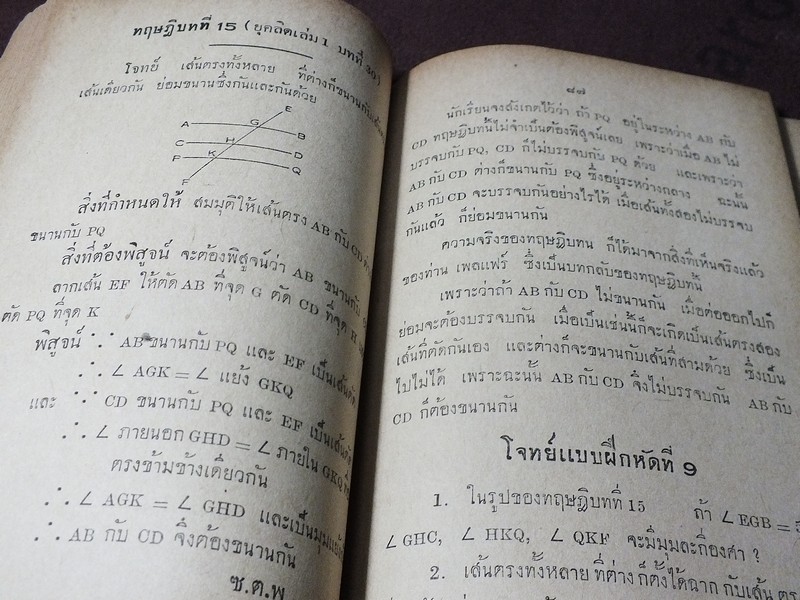 ทฤษฎีบทที่ 15 (ยุคลิดเล่ม 1 บทที่ 30)
โจทย์ เส้นตรงทั้งหลาย ที่ต่างก็ขนานกับเส้น
เส้นเดียวกัน ย่อมขนานซึ่งกันและกันด้วย
E
A G B
C H D
P K Q
F
สิ่งที่กำหนดให้ สมมุติให้เส้นตรง AB กับ CD ต่าง
ขนานกับ PQ
สิ่งที่ต้องพิสูจน์ จะต้องพิสูจน์ว่า AB ขนานกับ
ลากเส้น EF ให้ตัด AB ที่จุด G ตัด CD ที่จุด H
ตัด PQ ที่จุด K
พิสูจน์ ∵ AB ขนานกับ PQ และ EF เป็นเส้นตัด
∴ ∠ AGK = ∠ แย้ง GKQ
และ ∵ CD ขนานกับ PQ และ EF เป็นเส้นตัด
∴ ∠ ภายนอก GHD = ∠ ภายใน GKQ ที่
ตรงข้ามข้างเดียวกัน
∴ ∠ AGK = ∠ GHD และเป็นมุมแย้ง
∴ AB กับ CD จึงต้องขนานกัน
ซ.ต.พ
๔๗
นักเรียนจงสังเกตไว้ว่า ถ้า PQ อยู่ในระหว่าง AB กับ
CD ทฤษฎิบทนี้ไม่จำเป็นต้องพิสูจน์เลย เพราะว่าเมื่อ AB ไม่
บรรจบกับ PQ, CD ก็ไม่บรรจบกับ PQ ด้วย และเพราะว่า
AB กับ CD ต่างก็ขนานกับ PQ ซึ่งอยู่ระหว่างกลาง ฉะนั้น
AB กับ CD จะบรรจบกันอย่างไรได้ เมื่อเส้นทั้งสองไม่บรรจบ
กันแล้ว ก็ย่อมขนานกัน
ความจริงของทฤษฎิบทน ก็ได้มาจากสิ่งที่เห็นจริงแล้ว
ของท่าน เพลแฟร์ ซึ่งเป็นบทกลับของทฤษฎิบทนี้
เพราะว่าถ้า AB กับ CD ไม่ขนานกัน เมื่อต่อออกไปก็
ย่อมจะต้องบรรจบกัน เมื่อเป็นเช่นนี้ก็จะเกิดเป็นเส้นตรงสอง
เส้นที่ตัดกันเอง และต่างก็จะขนานกับเส้นที่สามด้วย ซึ่งเป็น
ไปไม่ได้ เพราะฉะนั้น AB กับ CD จึงไม่บรรจบกัน AB กับ
CD ก็ต้องขนานกัน
โจทย์แบบฝึกหัดที่ 9
1. ในรูปของทฤษฎิบทที่ 15 ถ้า ∠ EGB =
∠ GHC, ∠ HKQ, ∠ QKF จะมีมุมละกี่องศา ?
2. เส้นตรงทั้งหลาย ที่ต่าง ก็ตั้งได้ฉาก กับเส้น ตรง